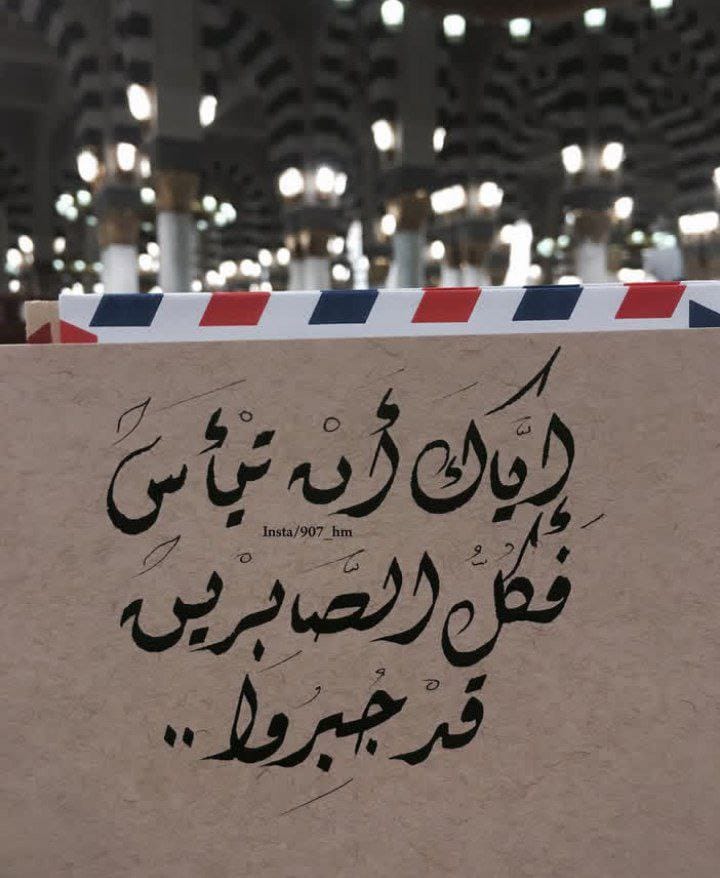 اِيَّاكَ أَنْ تَيْأَسَ
Insta/907_hm
فَكُلُّ الصَّابِرْينَ
قَدْ جُبِرُوا..